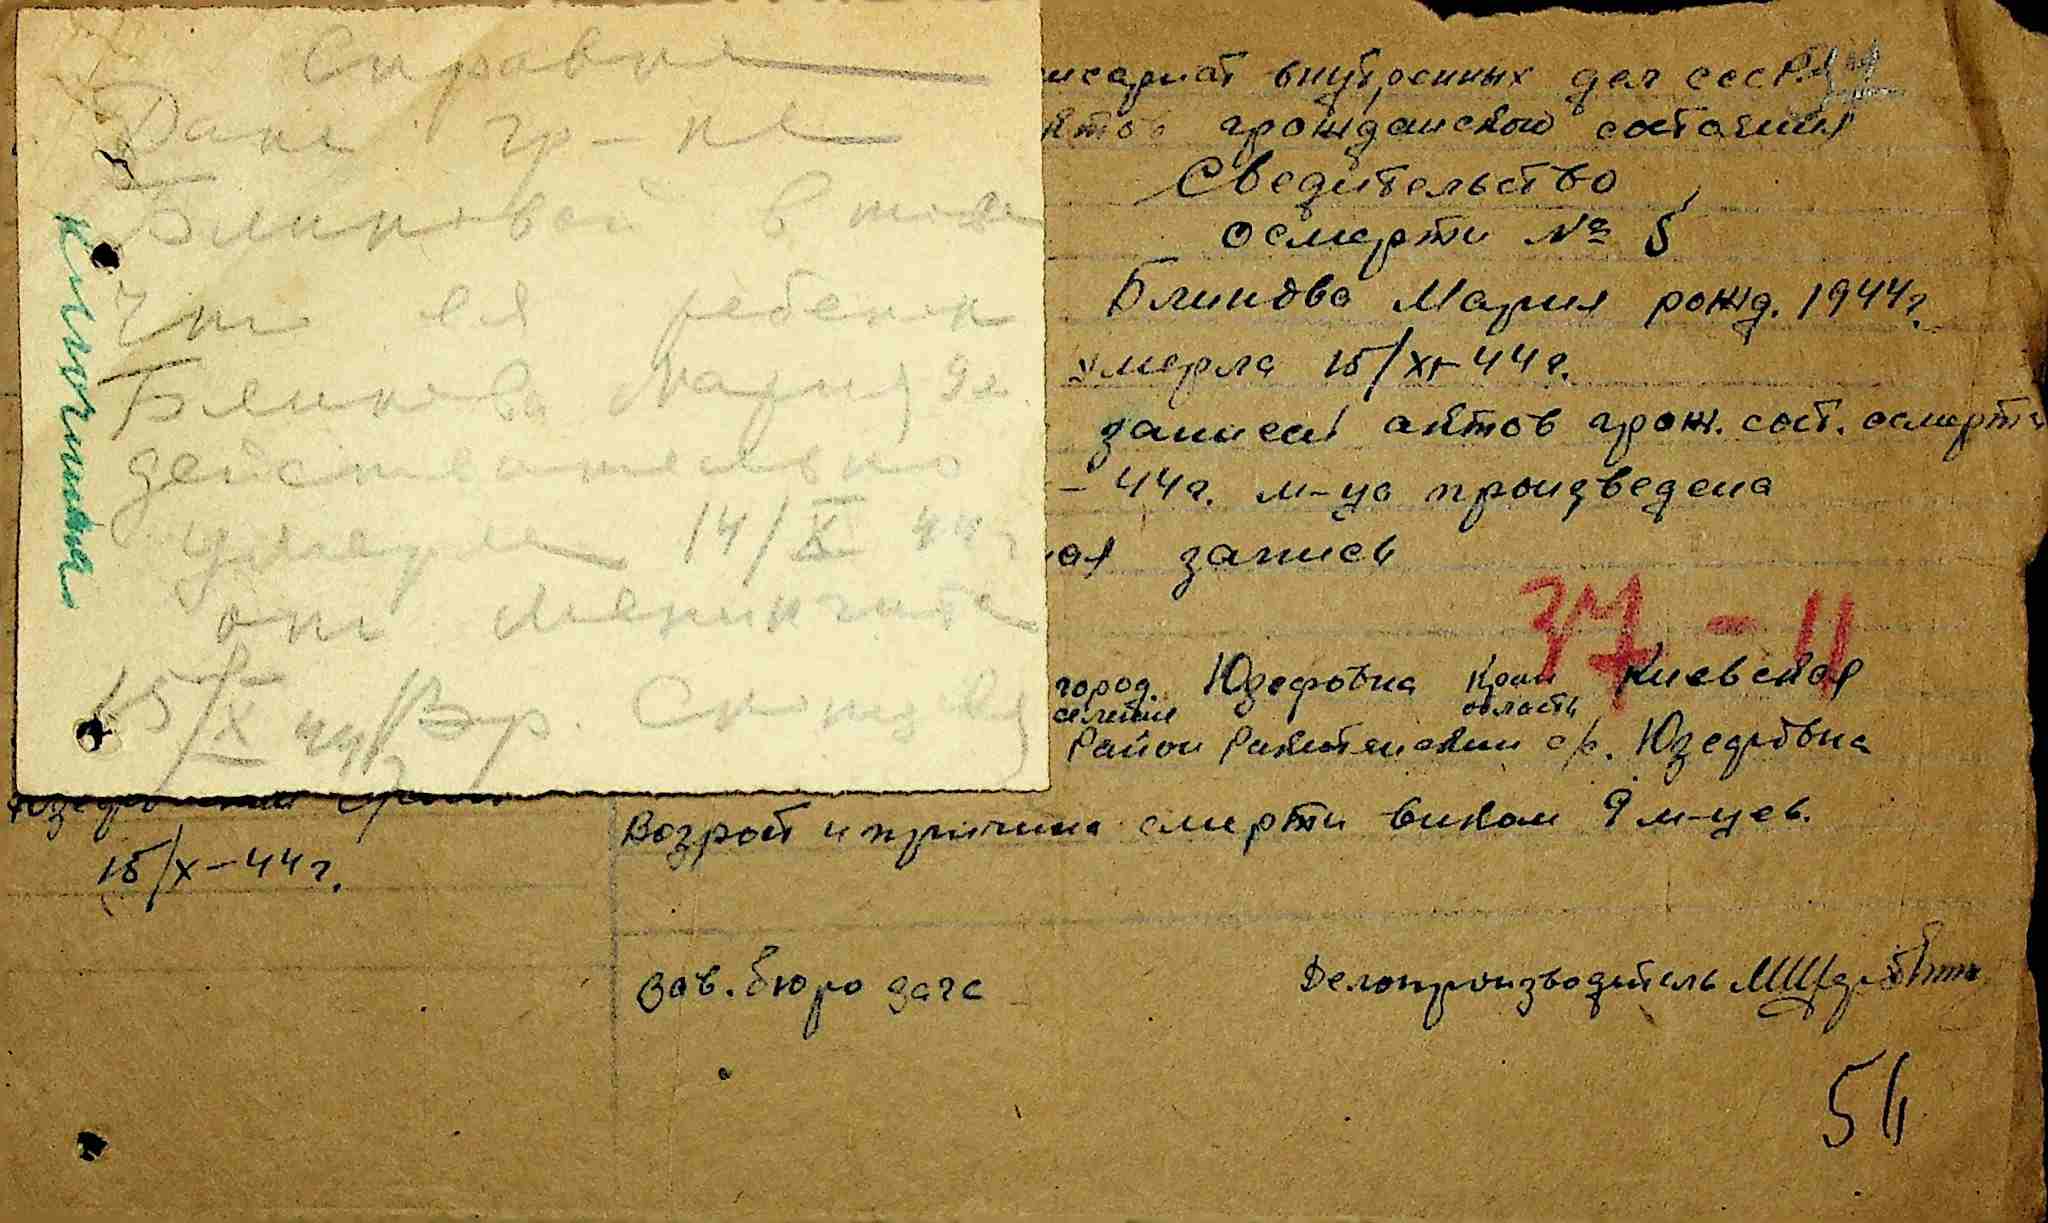 Справка
Дана гр-ке
Блиновой в том
что ея ребенок
Блинова Мария 9 м.
действительно
умерла 14/X 44 г
от менингита
15/X 44 г Вр.
исариат внутренных дел СССР
ктов гражданского состояния
Сведительство
осмерти № 5
Блинова Мария рожд. 1944 г.
умерла 15/XI-44 г.
записи актов грож. сост. осмерти
- 44 г. м-ца произведена
ая запись
37 - 11
город. Юзефовка край Киевская
селение область
Район Ракитянский с/с. Юзефовка
Возрост и причина смерти виком 9 м-цев.
15/X-44 г.
Зав. бюро загс Делопроизводитель